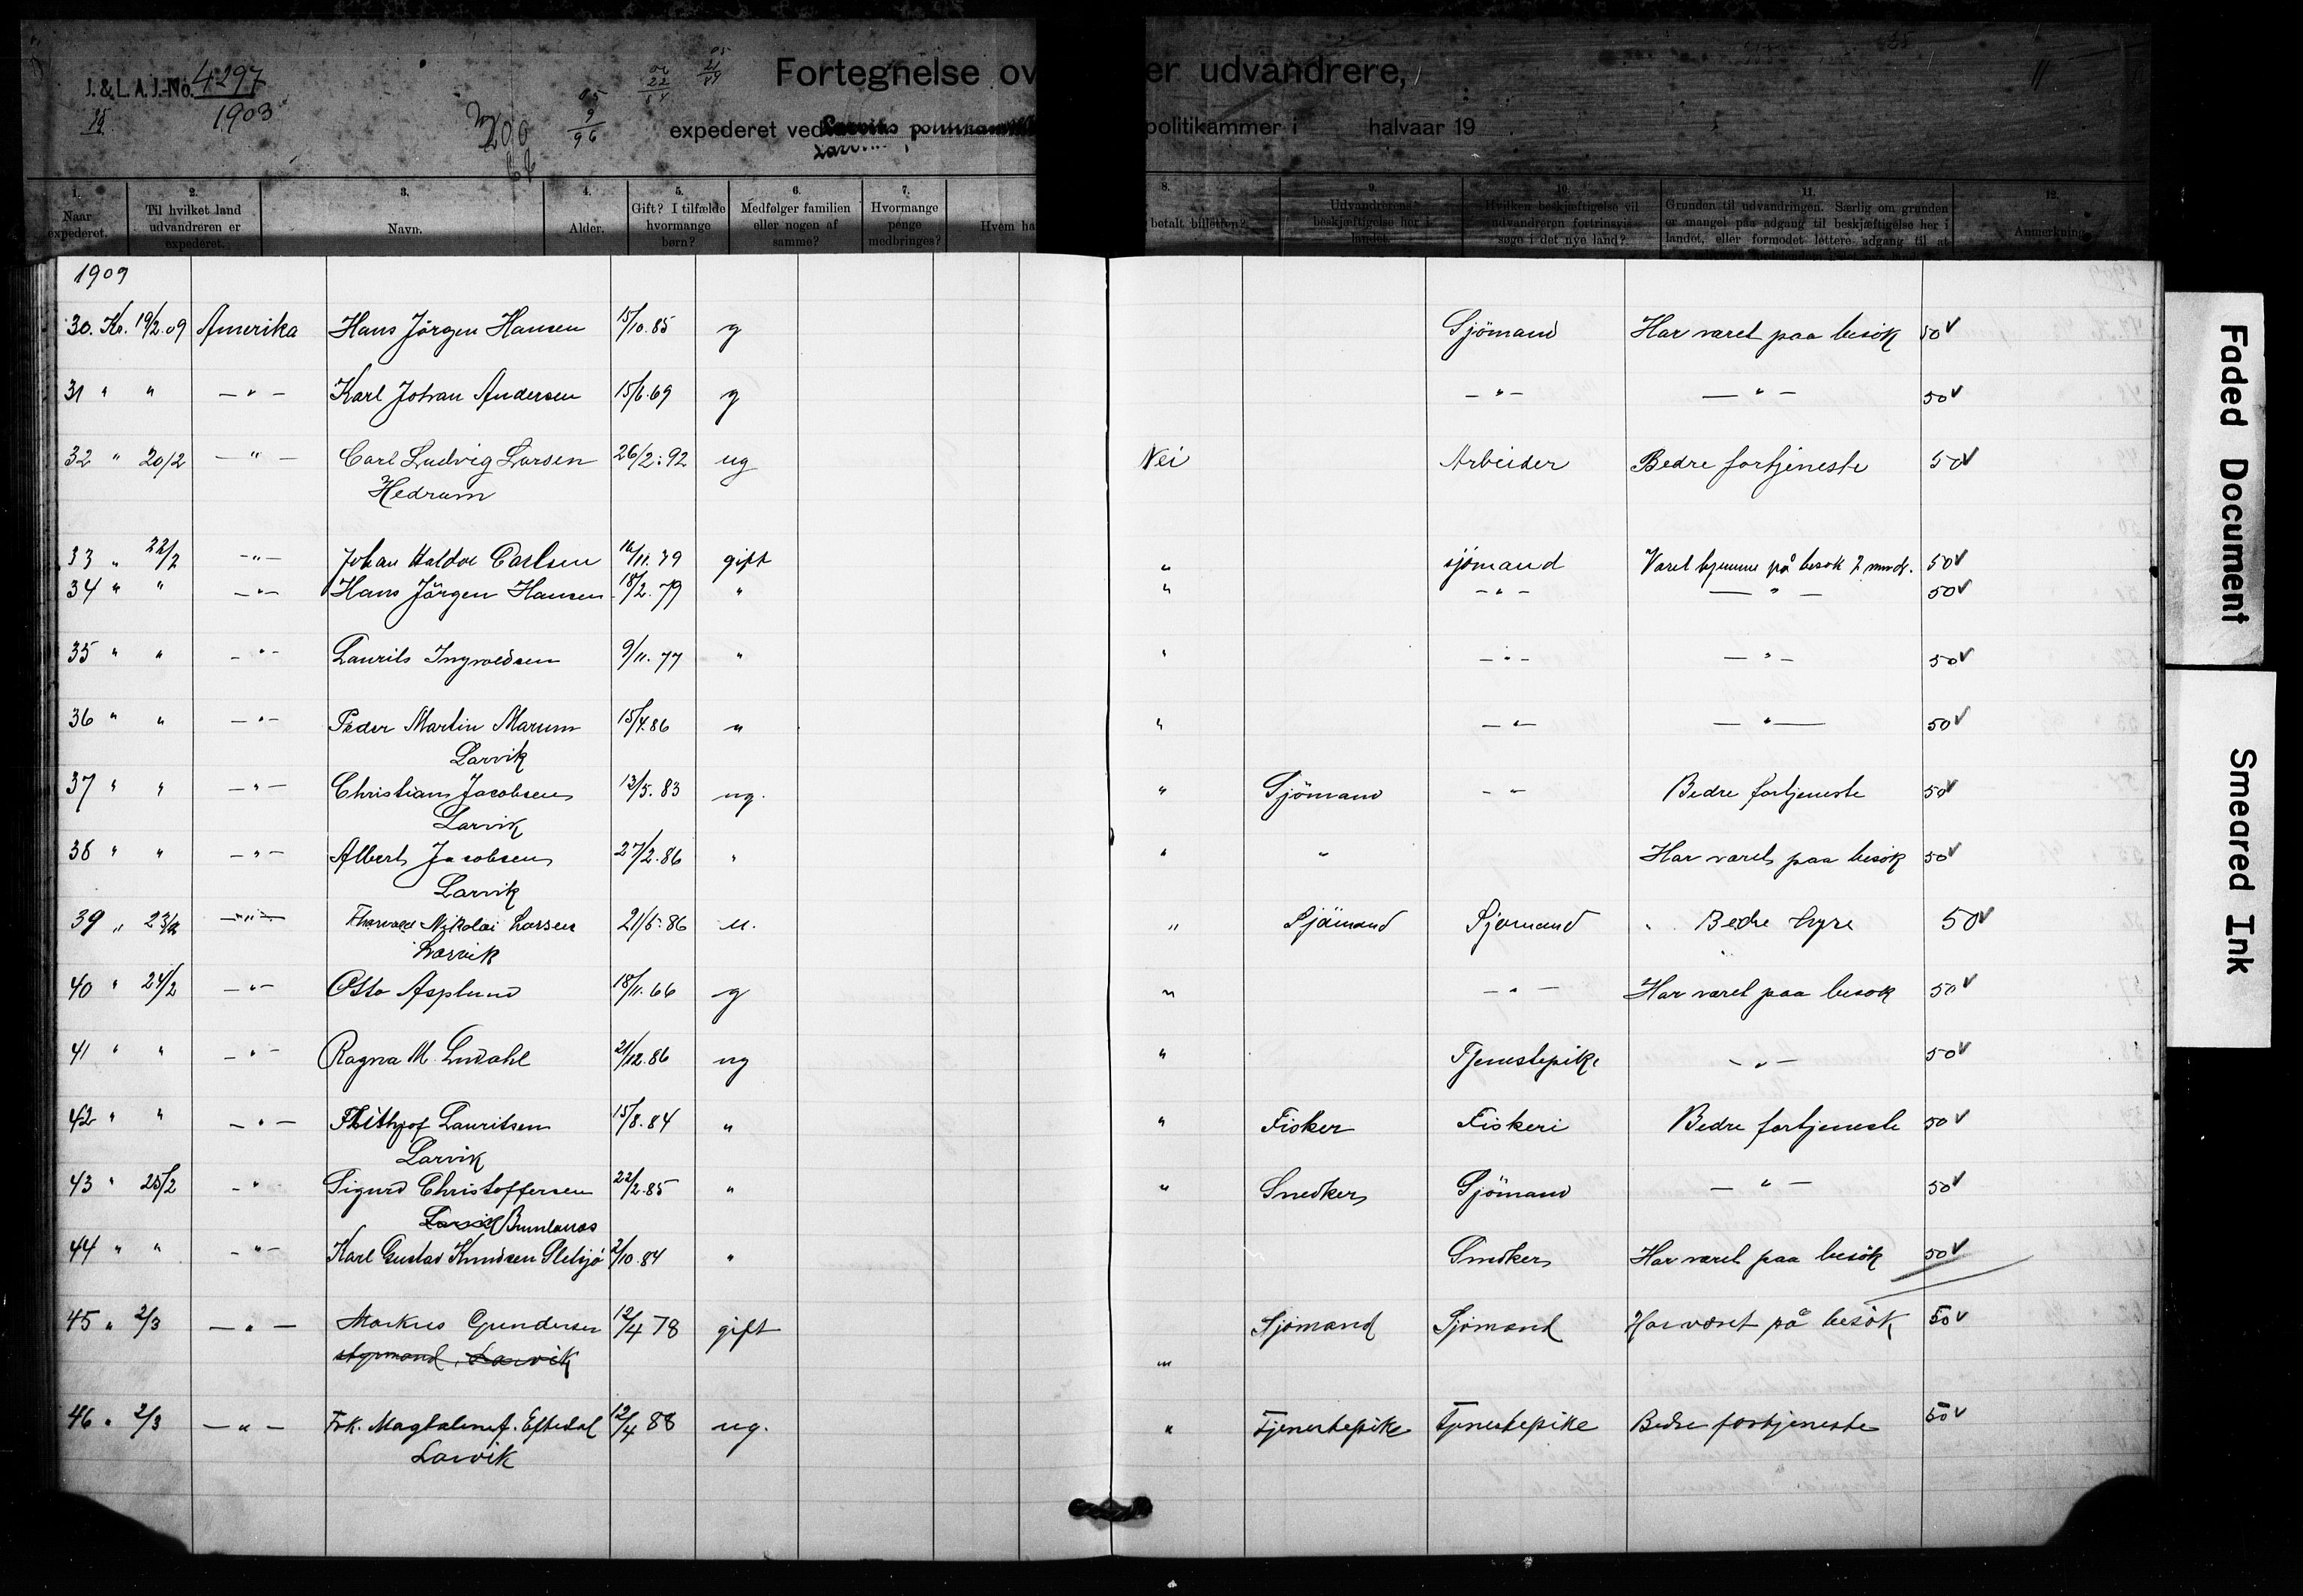 J. & L. A. J.-No. 4297
1903
Fortegnelse over udvandrere,
expederet ved Larviks politikammer i halvaar 19
1. Naar expederet.
2. Til hvilket land udvandreren er expederet.
3. Navn.
4. Alder.
5. Gift? I tilfælde hvormange børn?
6. Medfølger familien eller nogen af samme?
7. Hvormange penge medbringes?
8. Hvem ha betalt billetten?
9. Udvandrerens beskjæftigelse her i landet.
10. Hvilken beskjæftigelse vil udvandreren fortrinsvis søge i det nye land?
11. Grunden til udvandringen. Særlig om grunden er mangel paa adgang til beskjæftigelse her i landet, eller formodet lettere adgang til at
12. Anmerkning.
1909
30. Kr. 19/2.09 Amerika Hans Jörgen Hansen 15/10.85 g Sjömand Har været paa besök 50 ✓
31 " " — " — Karl Johan Andersen 15/6.69 g — " — — " — 50 ✓
32 " 20/2 — " — Carl Ludvig Larsen 26/2.92 ug Nei Arbeider Bedre fortjeneste 50 ✓
Hedrum
33 " 22/2 — " — Johan Haldor Carlsen 16/11.79 gift " sjömand Varet hjemme på besøk 2 mndr. 50 ✓
34 " " — " — Hans Jörgen Hansen 18/2.79 " " — " — — " — 50 ✓
35 " " — " — Laurits Ingvoldsen 9/11.77 " " — " — — " — 50 ✓
36 " " — " — Peder Martin Marum 15/4.86 " " — " — — " — 50 ✓
Larvik
37 " " — " — Christian Jacobsen 13/5.83 ug. " Sjömand — " Bedre fortjeneste 50 ✓
Larvik
38 " " — " — Albert Jacobsen 27/2.86 " " " Har været paa besök 50 ✓
Larvik
39 " 23/2 — " — Tharald Nikolai Larsen 21/5.86 u. " Sjömand Sjømand Bedre hyre 50 ✓
Larvik
40 " 24/2 — " — Otto Asplund 18/11.66 g " — " — Har været paa besøk 50 ✓
41 " " — " — Ragna M. Lindahl 21/12.86 ug " Tjenestepike — " — 50 ✓
42 " " — " — Frithjof Lauritsen 15/8.84 " " Fisker Fiskeri Bedre fortjeneste 50 ✓
Larvik
43 " 25/2 — " Sigurd Christoffersen 22/2.85 " " Snedker Sjömand — " — 50 ✓
Larvik Brunlanæs
44 " " — " — Karl Gustav Knudsen 2/10.84 " Snedker Har været paa besök 50 ✓
45 " 2/3 — " — Markus Gundersen 12/4 78 gift Sjømand Sjømand Har været på besök 50 ✓
styrmand, Larvik "
46 " 2/3 — " — Frk. Magdalene A. Eftedal 12/4 88 ug. " Tjenestepike Tjenestepike Bedre fortjeneste 50 ✓
Larvik
Faded Document
Smeared Ink